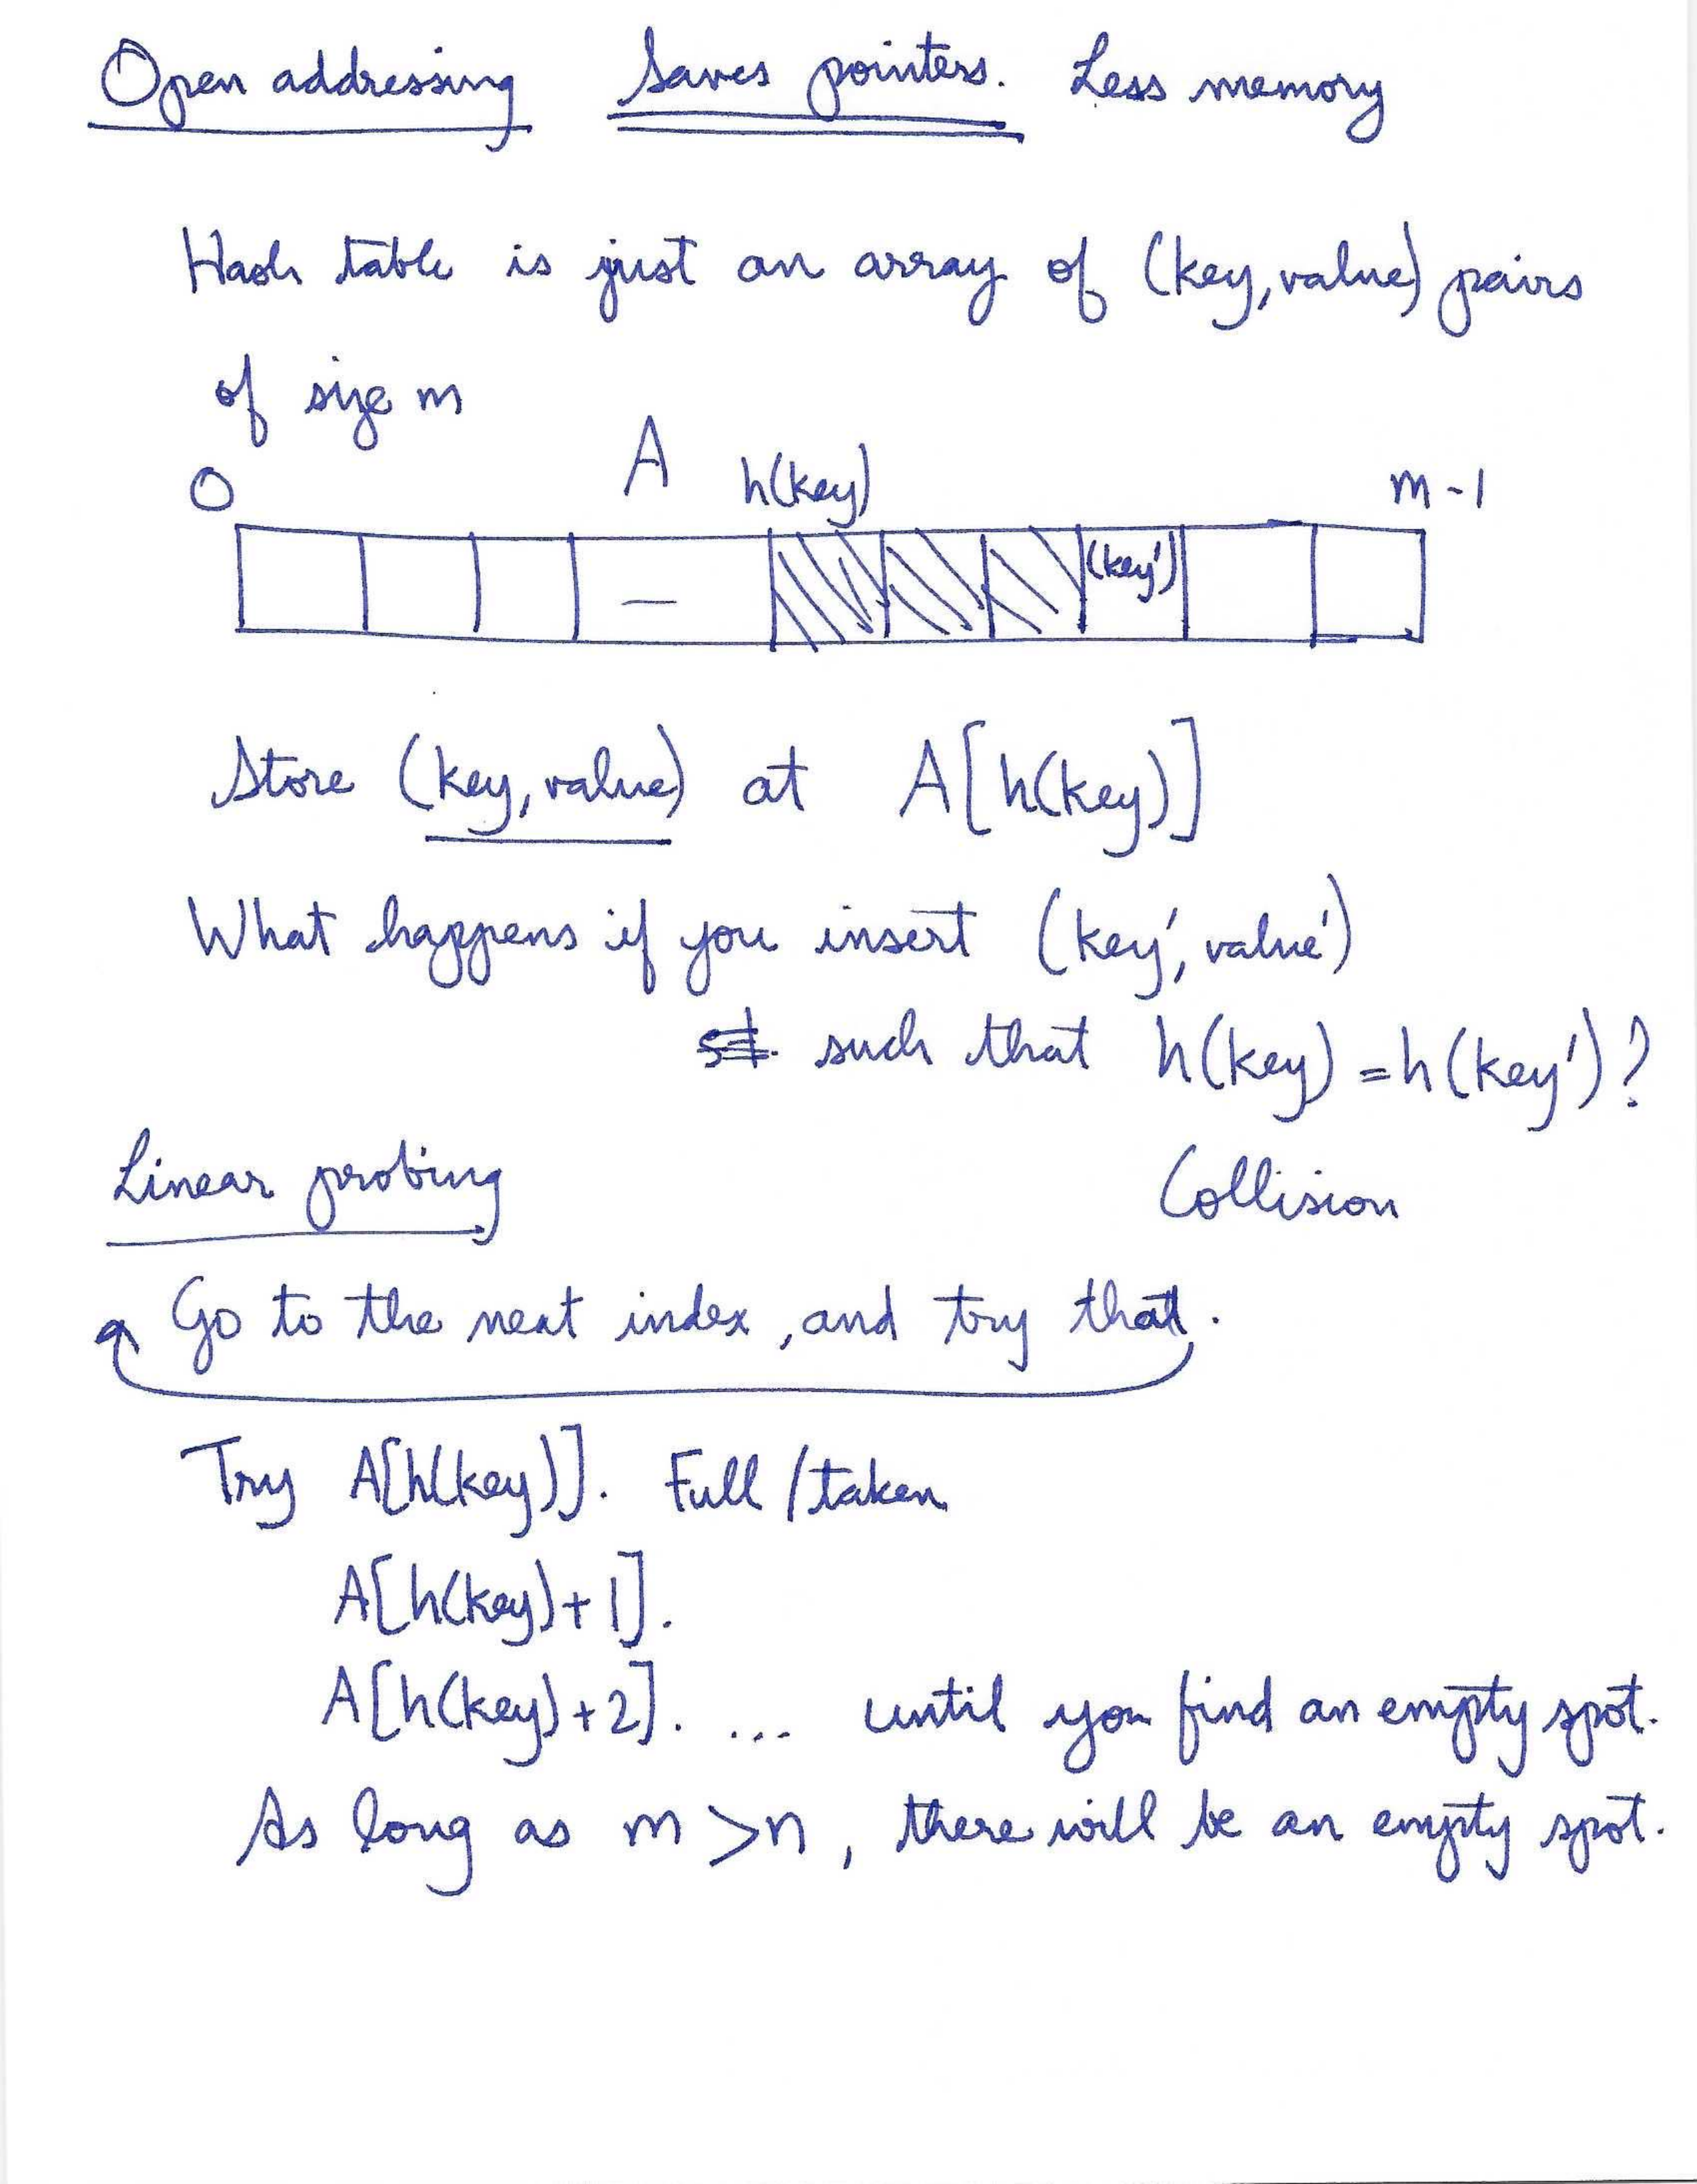 Open addressing Saves pointers. Less memory
Hash table is just an array of (key, value) pairs
of size m
0 A h(key) m-1
(key')
Store (key, value) at A[h(key)]
What happens if you insert (key', value')
such that h(key) = h(key')?
Linear probing Collision
Go to the next index, and try that.
Try A[h(key)]. Full / taken
A[h(key)+1].
A[h(key)+2]. ... until you find an empty spot.
As long as m > n, there will be an empty spot.